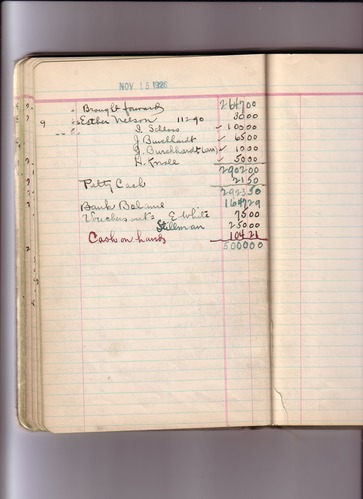 NOV 15 1926
Brought forward 2647 00
9 Esther Nelson 11290 30 00
I Schloss ✓ 100 00
J Burchhardt ✓ 65 00
J. Burchhardt ✓ 10 00
H. Knoll ✓ 50 00
2902 00
Petty Cash 21 50
2923 50
Bank Balance 1647 29
Vouchers E White 75 00
Stillman 250 00
Cash on hand 104 21
5000 00